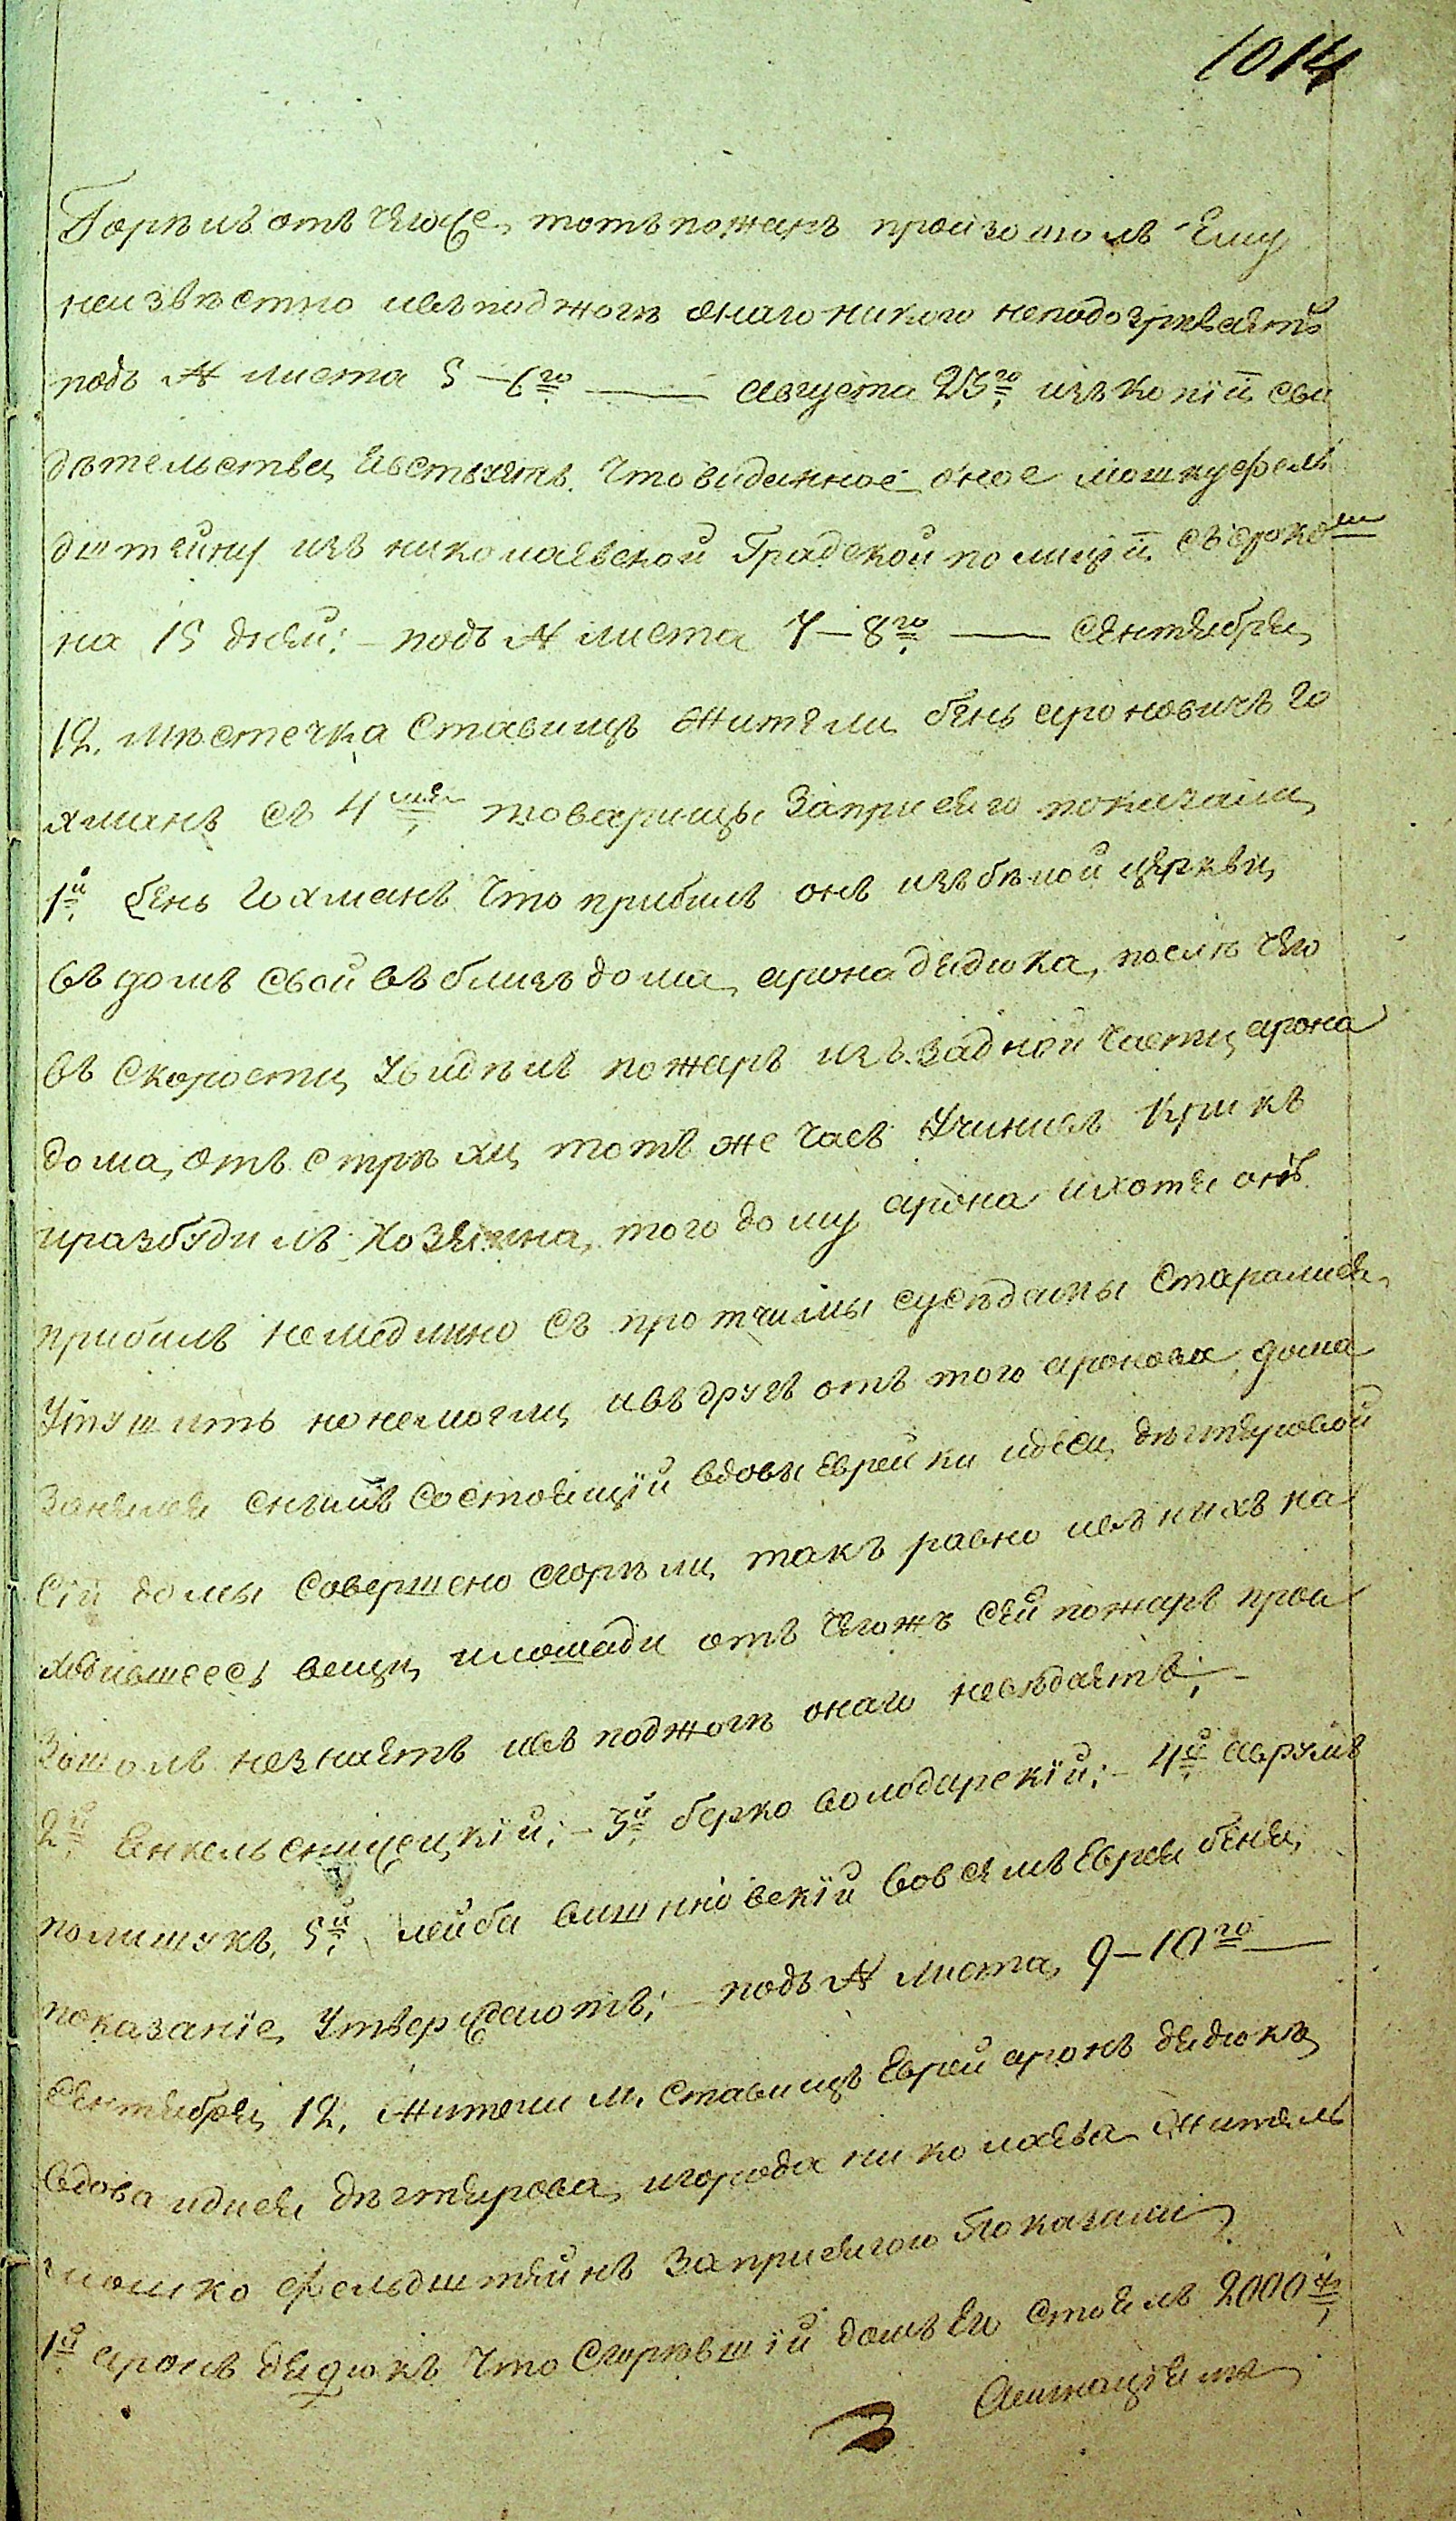 1014
Горѣлъ отъ чегоже тотъ пожаръ произошолъ Ему
неизвѣстно ивъ поджогѣ онаго никого неподозрѣваетъ
подъ № листа 5-6го — августа 23го изъ копіи сви
дѣтельства явствуетъ что виданное оное мошку фель
дштейну изъ николаевской Градской полиціи съ срокомъ
на 15 дней:- подъ № листа 7-8го — сентября
12. мѣстечка Ставищъ жители бень ароновичъ Го
хманъ съ 4мя товарищы заприсяго показали
1й бень Гохманъ что прибилъ онъ изъ бѣлой церкви
въ домъ свой въ близъ дома арона дядюка, послѣ чего
въ скорости увидѣлъ пожаръ изъ задной части арона
дома, отъ стрѣхи тотъ же часъ учинилъ крикъ
иразбудилъ хозяина, того дому арона ихотя онъ
прибилъ немедлино съ протчимы сусѣдамы старались
утушить но немогли ивъдругъ отъ того аронова дома
занялся снымъ состоящій вдовы еврейки идеси дѣгтяровой
сій домы совершено сгорѣли такъ равно ивъ нихъ на
ходившееся вещи илошади отъ чегожъ сей пожаръ прои
зошолъ незнаетъ ивъ поджогѣ онаго невѣдаетъ;-
2й Енкель снищецкій;- 3й берко володарскій;- 4й аврумъ
полишукъ, 5й лейба вишніовскій вовсемъ еврея беня
показаніе утверждаютъ;- подъ № листа 9-10го —
сентября 12. жители м. Ставищъ еврей аронъ дядюкъ
вдова идися дѣгтярова игорода николаева житель
мошко фельдштейнъ заприсягою показали
1й аронъ дядюкъ что сгорѣвшій домъ его стоялъ 2000 р
Асигнаціямы